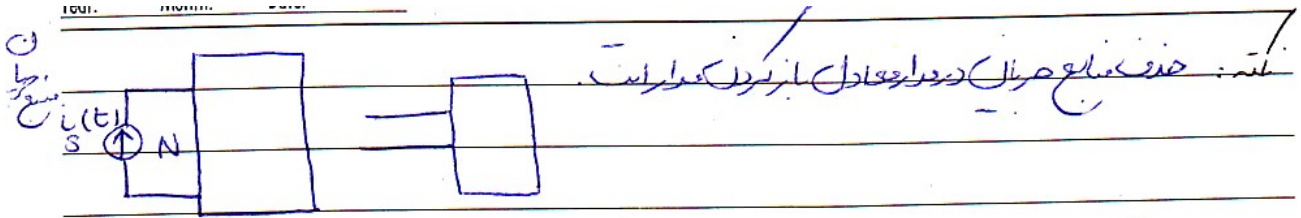 نکته: حذف منابع جریان در مدار معادل باز کردن مدار است.
منبع جریان
is(t)
N